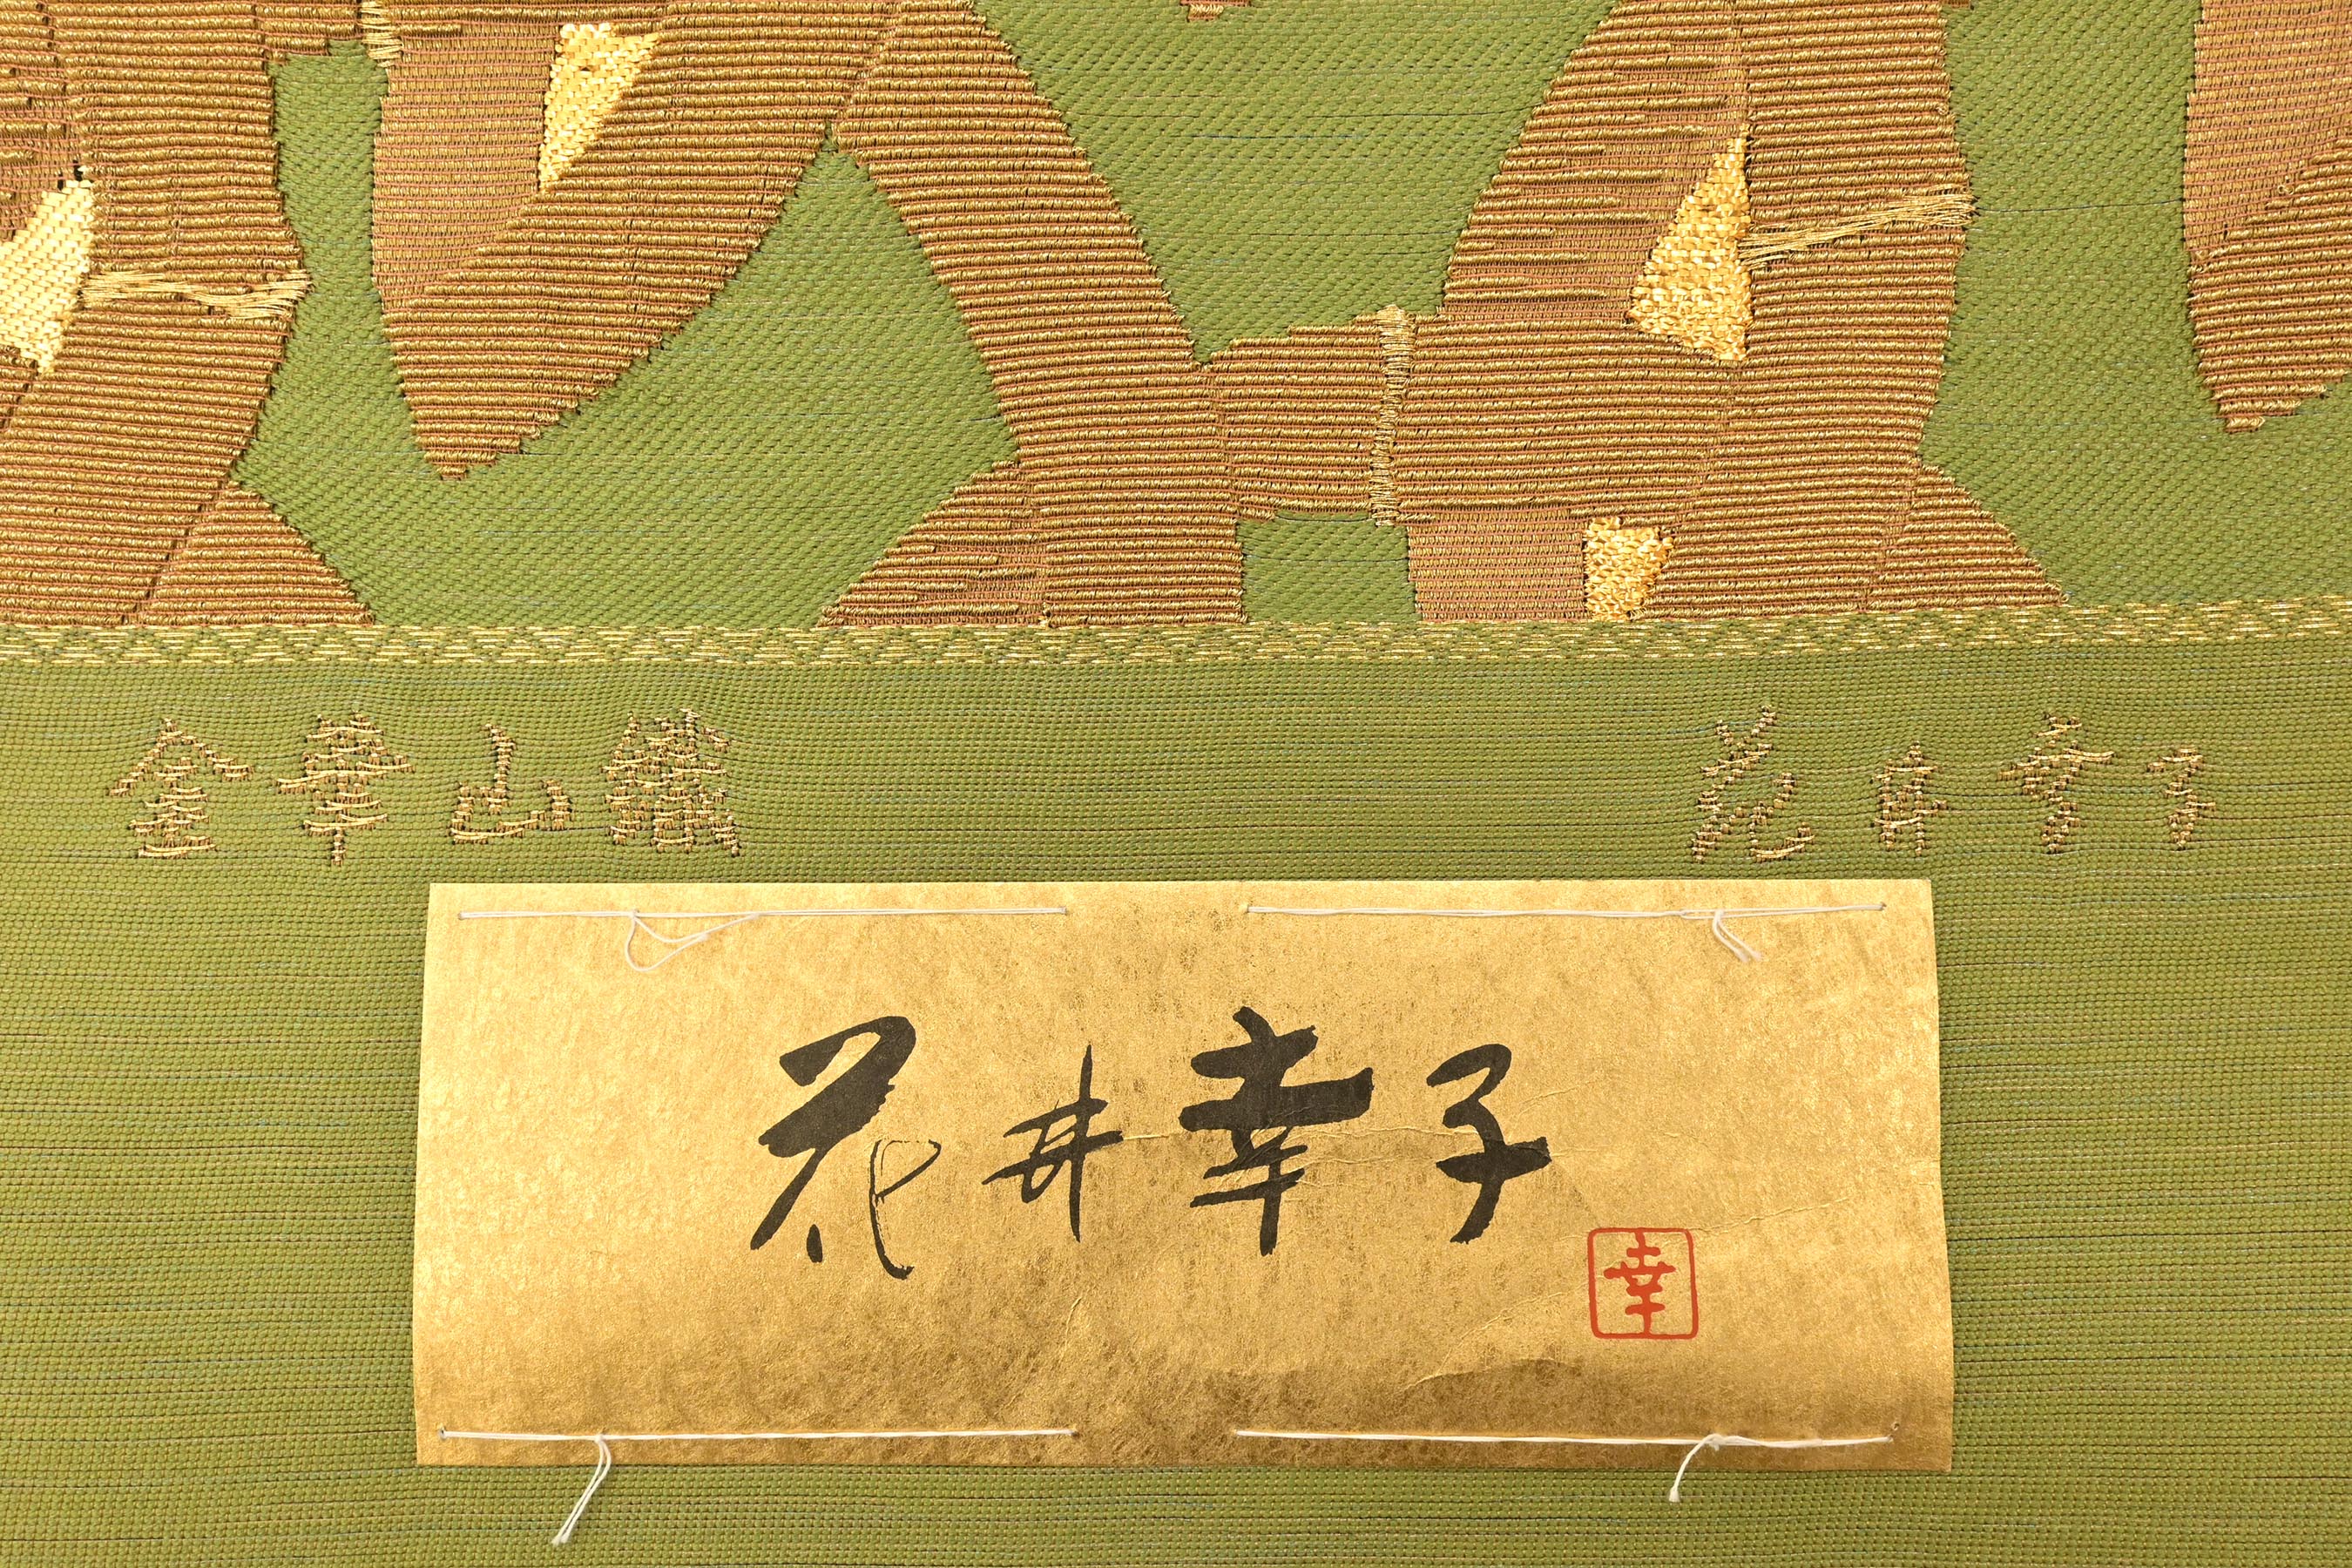 金華山織 花井幸子
花井幸子
幸